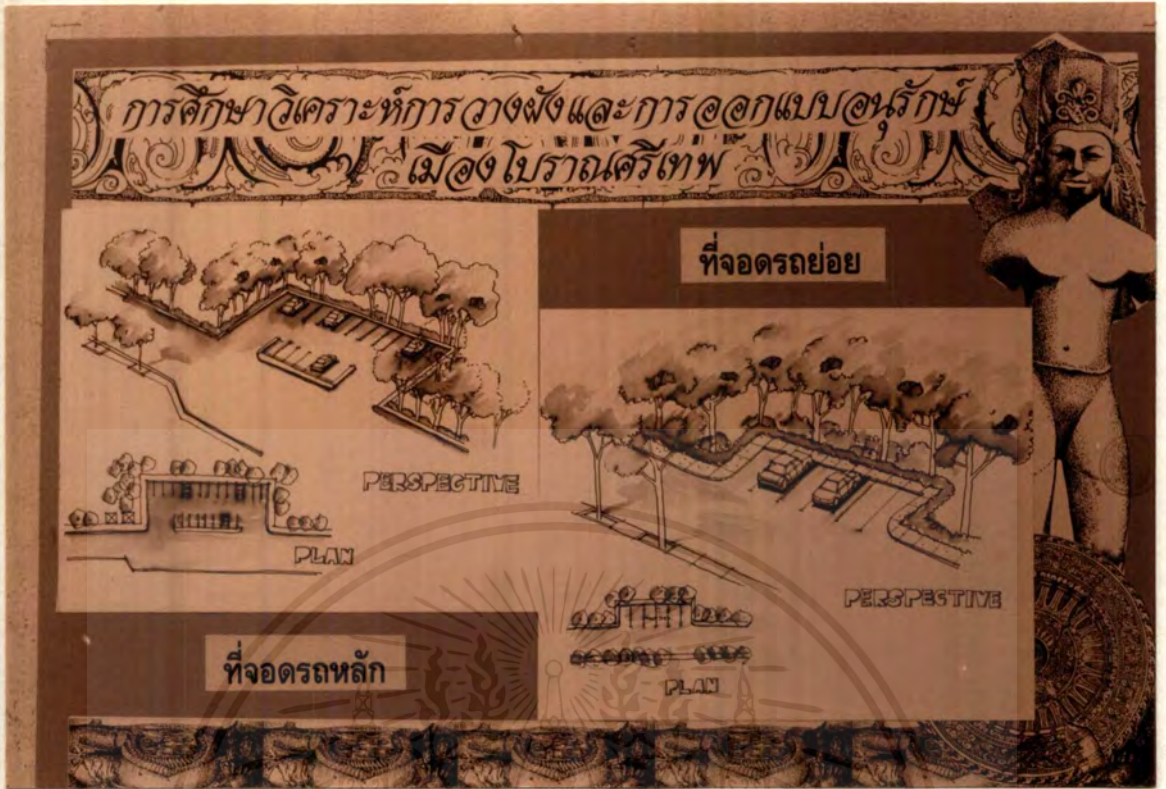 การศึกษาวิเคราะห์การวางผังและการออกแบบอนุรักษ์
เมืองโบราณศรีเทพ
ที่จอดรถย่อย
PERSPECTIVE
PLAN
ที่จอดรถหลัก
PERSPECTIVE
PLAN